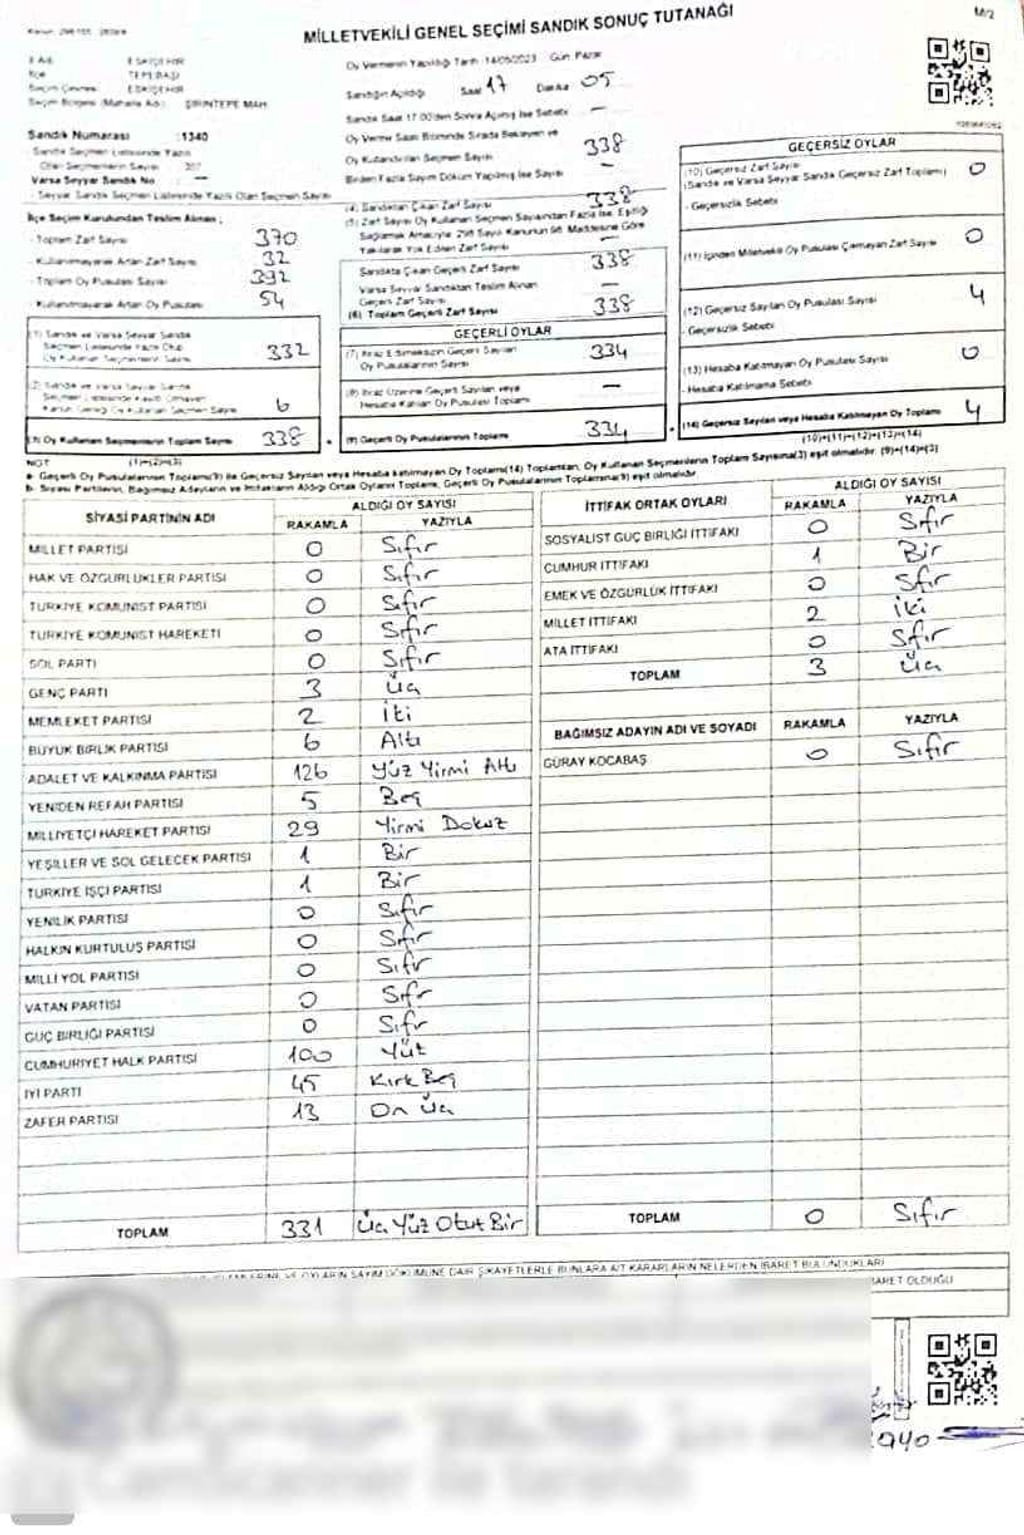 MİLLETVEKİLİ GENEL SEÇİMİ SANDIK SONUÇ TUTANAĞI
M/2
İl Adı : ESKİŞEHİR
İlçe : TEPEBAŞI
Seçim Çevresi : ESKİŞEHİR
Seçim Bölgesi (Mahalle Adı) : ŞİRİNTEPE MAH.
Sandık Numarası : 1340
Sandık Seçmen Listesinde Yazılı
Olan Seçmenlerin Sayısı
Varsa Seyyar Sandık No —
- Seyyar Sandık Seçmen Listesinde Yazılı Olan Seçmen Sayısı
İlçe Seçim Kurulundan Teslim Alınan ;
- Toplam Zarf Sayısı 370
- Kullanılmayarak Artan Zarf Sayısı 32
- Toplam Oy Pusulası Sayısı 392
- Kullanılmayarak Artan Oy Pusulası 54
(1) Sandık ve Varsa Seyyar Sandık
Seçmen Listesinde Yazılı Olup
Oy Kullanan Seçmenlerin Sayısı 332
(2) Sandık ve Varsa Seyyar Sandık
Seçmen Listesinde Kayıtlı Olmayan
Kanun Gereği Oy Kullanan Seçmen Sayısı 6
(3) Oy Kullanan Seçmenlerin Toplam Sayısı 338
(1)+(2)=(3)
Oy Vermenin Yapıldığı Tarih : 14/05/2023 Gün : Pazar
Sandığın Açıldığı Saat 17 Dakika 05
Sandık Saat 17.00'den Sonra Açılmış İse Sebebi —
Oy Verme Saati Bitiminde Sırada Bekleyen ve
Oy Kullandırılan Seçmen Sayısı 338
Birden Fazla Sayım Döküm Yapılmış İse Sayısı —
(4) Sandıktan Çıkan Zarf Sayısı 338
(5) Zarf Sayısı Oy Kullanan Seçmen Sayısından Fazla İse, Eşitliği
Sağlamak Amacıyla; 298 Sayılı Kanunun 98. Maddesine Göre
Yakılarak Yok Edilen Zarf Sayısı —
Sandıkta Çıkan Geçerli Zarf Sayısı 338
Varsa Seyyar Sandıktan Teslim Alınan
Geçerli Zarf Sayısı —
(6) Toplam Geçerli Zarf Sayısı 338
GEÇERLİ OYLAR
(7) İtiraz Edilmeksizin Geçerli Sayılan
Oy Pusulalarının Sayısı 334
(8) İtiraz Üzerine Geçerli Sayılan veya
Hesaba Katılan Oy Pusulası Toplamı —
(9) Geçerli Oy Pusulalarının Toplamı 334
GEÇERSİZ OYLAR
(10) Geçersiz Zarf Sayısı 0
(Sandık ve Varsa Seyyar Sandık Geçersiz Zarf Toplamı)
- Geçersizlik Sebebi
(11) İçinden Milletvekili Oy Pusulası Çıkmayan Zarf Sayısı 0
(12) Geçersiz Sayılan Oy Pusulası Sayısı 4
- Geçersizlik Sebebi
(13) Hesaba Katılmayan Oy Pusulası Sayısı 0
- Hesaba Katılmama Sebebi
(14) Geçersiz Sayılan veya Hesaba Katılmayan Oy Toplamı 4
(10)+(11)+(12)+(13)=(14)
NOT
a- Geçerli Oy Pusulalarının Toplamı(9) ile Geçersiz Sayılan veya Hesaba katılmayan Oy Toplamı(14) Toplamları, Oy Kullanan Seçmenlerin Toplam Sayısına(3) eşit olmalıdır. (9)+(14)=(3)
b- Siyasi Partilerin, Bağımsız Adayların ve İttifakların Aldığı Ortak Oyların Toplamı, Geçerli Oy Pusulalarının Toplamına(9) eşit olmalıdır.
SİYASİ PARTİNİN ADI ALDIĞI OY SAYISI
RAKAMLA YAZIYLA
MİLLET PARTİSİ 0 Sıfır
HAK VE ÖZGÜRLÜKLER PARTİSİ 0 Sıfır
TÜRKİYE KOMÜNİST PARTİSİ 0 Sıfır
TÜRKİYE KOMÜNİST HAREKETİ 0 Sıfır
SOL PARTİ 0 Sıfır
GENÇ PARTİ 3 Üç
MEMLEKET PARTİSİ 2 İki
BÜYÜK BİRLİK PARTİSİ 6 Altı
ADALET VE KALKINMA PARTİSİ 126 Yüz Yirmi Altı
YENİDEN REFAH PARTİSİ 5 Beş
MİLLİYETÇİ HAREKET PARTİSİ 29 Yirmi Dokuz
YEŞİLLER VE SOL GELECEK PARTİSİ 1 Bir
TÜRKİYE İŞÇİ PARTİSİ 1 Bir
YENİLİK PARTİSİ 0 Sıfır
HALKIN KURTULUŞ PARTİSİ 0 Sıfır
MİLLİ YOL PARTİSİ 0 Sıfır
VATAN PARTİSİ 0 Sıfır
GÜÇ BİRLİĞİ PARTİSİ 0 Sıfır
CUMHURİYET HALK PARTİSİ 100 Yüz
İYİ PARTİ 45 Kırk Beş
ZAFER PARTİSİ 13 On Üç
TOPLAM 331 Üç Yüz Otuz Bir
İTTİFAK ORTAK OYLARI ALDIĞI OY SAYISI
RAKAMLA YAZIYLA
SOSYALİST GÜÇ BİRLİĞİ İTTİFAKI 0 Sıfır
CUMHUR İTTİFAKI 1 Bir
EMEK VE ÖZGÜRLÜK İTTİFAKI 0 Sıfır
MİLLET İTTİFAKI 2 İki
ATA İTTİFAKI 0 Sıfır
TOPLAM 3 Üç
BAĞIMSIZ ADAYIN ADI VE SOYADI RAKAMLA YAZIYLA
GÜRAY KOCABAŞ 0 Sıfır
TOPLAM 0 Sıfır
İŞLEMLERİNE VE OYLARIN SAYIM DÖKÜMÜNE DAİR ŞİKAYETLERLE BUNLARA AİT KARARLARIN NELERDEN İBARET BULUNDUKLARI
İBARET OLDUĞU